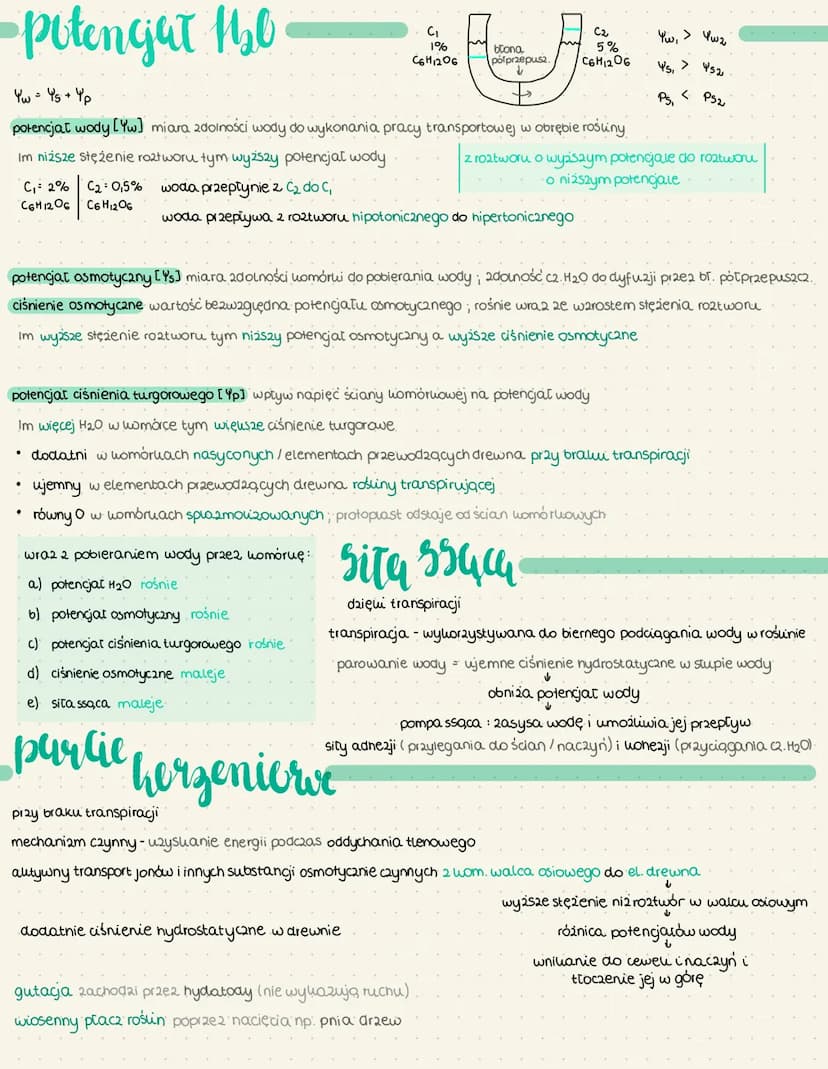 potencjał H2O
C1
1%
C6H12O6
błona
półprzepusz.
C2
5%
C6H12O6
Ψw1 > Ψw2
Ψs1 > Ψs2
Ps1 < Ps2
Ψw = Ψs + Ψp
potencjał wody [Ψw] miara zdolności wody do wykonania pracy transportowej w obrębie rośliny
Im niższe stężenie roztworu tym wyższy potencjał wody
z roztworu o wyższym potencjale do roztworu
o niższym potencjale
C1 = 2% | C2 = 0,5% woda przepłynie z C2 do C1
C6H12O6 | C6H12O6
woda przepływa z roztworu hipotonicznego do hipertonicznego
potencjał osmotyczny [Ψs] miara zdolności komórki do pobierania wody ; zdolność cz. H2O do dyfuzji przez bł. półprzepuszcz.
ciśnienie osmotyczne wartość bezwzględna potencjału osmotycznego ; rośnie wraz ze wzrostem stężenia roztworu
Im wyższe stężenie roztworu tym niższy potencjał osmotyczny a wyższe ciśnienie osmotyczne
potencjał ciśnienia turgorowego [Ψp] wpływ napięć ściany komórkowej na potencjał wody
Im więcej H2O w komórce tym większe ciśnienie turgorowe
• dodatni w komórkach nasyconych / elementach przewodzących drewna przy braku transpiracji
• ujemny w elementach przewodzących drewna rośliny transpirującej
• równy 0 w komórkach splazmolizowanych ; protoplast odstaje od ścian komórkowych
wraz z pobieraniem wody przez komórkę :
a) potencjał H2O rośnie
b) potencjał osmotyczny rośnie
c) potencjał ciśnienia turgorowego rośnie
d) ciśnienie osmotyczne maleje
e) siła ssąca maleje
siła ssąca
dzięki transpiracji
transpiracja - wykorzystywana do biernego podciągania wody w roślinie
parowanie wody = ujemne ciśnienie hydrostatyczne w słupie wody
↓
obniża potencjał wody
↓
pompa ssąca : zasysa wodę i umożliwia jej przepływ
siły adhezji ( przylegania do ścian / naczyń) i kohezji (przyciągania cz. H2O)
parcie korzeniowe
przy braku transpiracji
mechanizm czynny - uzyskanie energii podczas oddychania tlenowego
aktywny transport jonów i innych substancji osmotycznie czynnych z kom. walca osiowego do el. drewna
↓
wyższe stężenie niż roztwór w walcu osiowym
↓
dodatnie ciśnienie hydrostatyczne w drewnie
różnica potencjałów wody
↓
wnikanie do cewek i naczyń i
tłoczenie jej w górę
gutacja zachodzi przez hydatody (nie wykazują ruchu)
wiosenny płacz roślin poprzez nacięcia np. pnia drzew